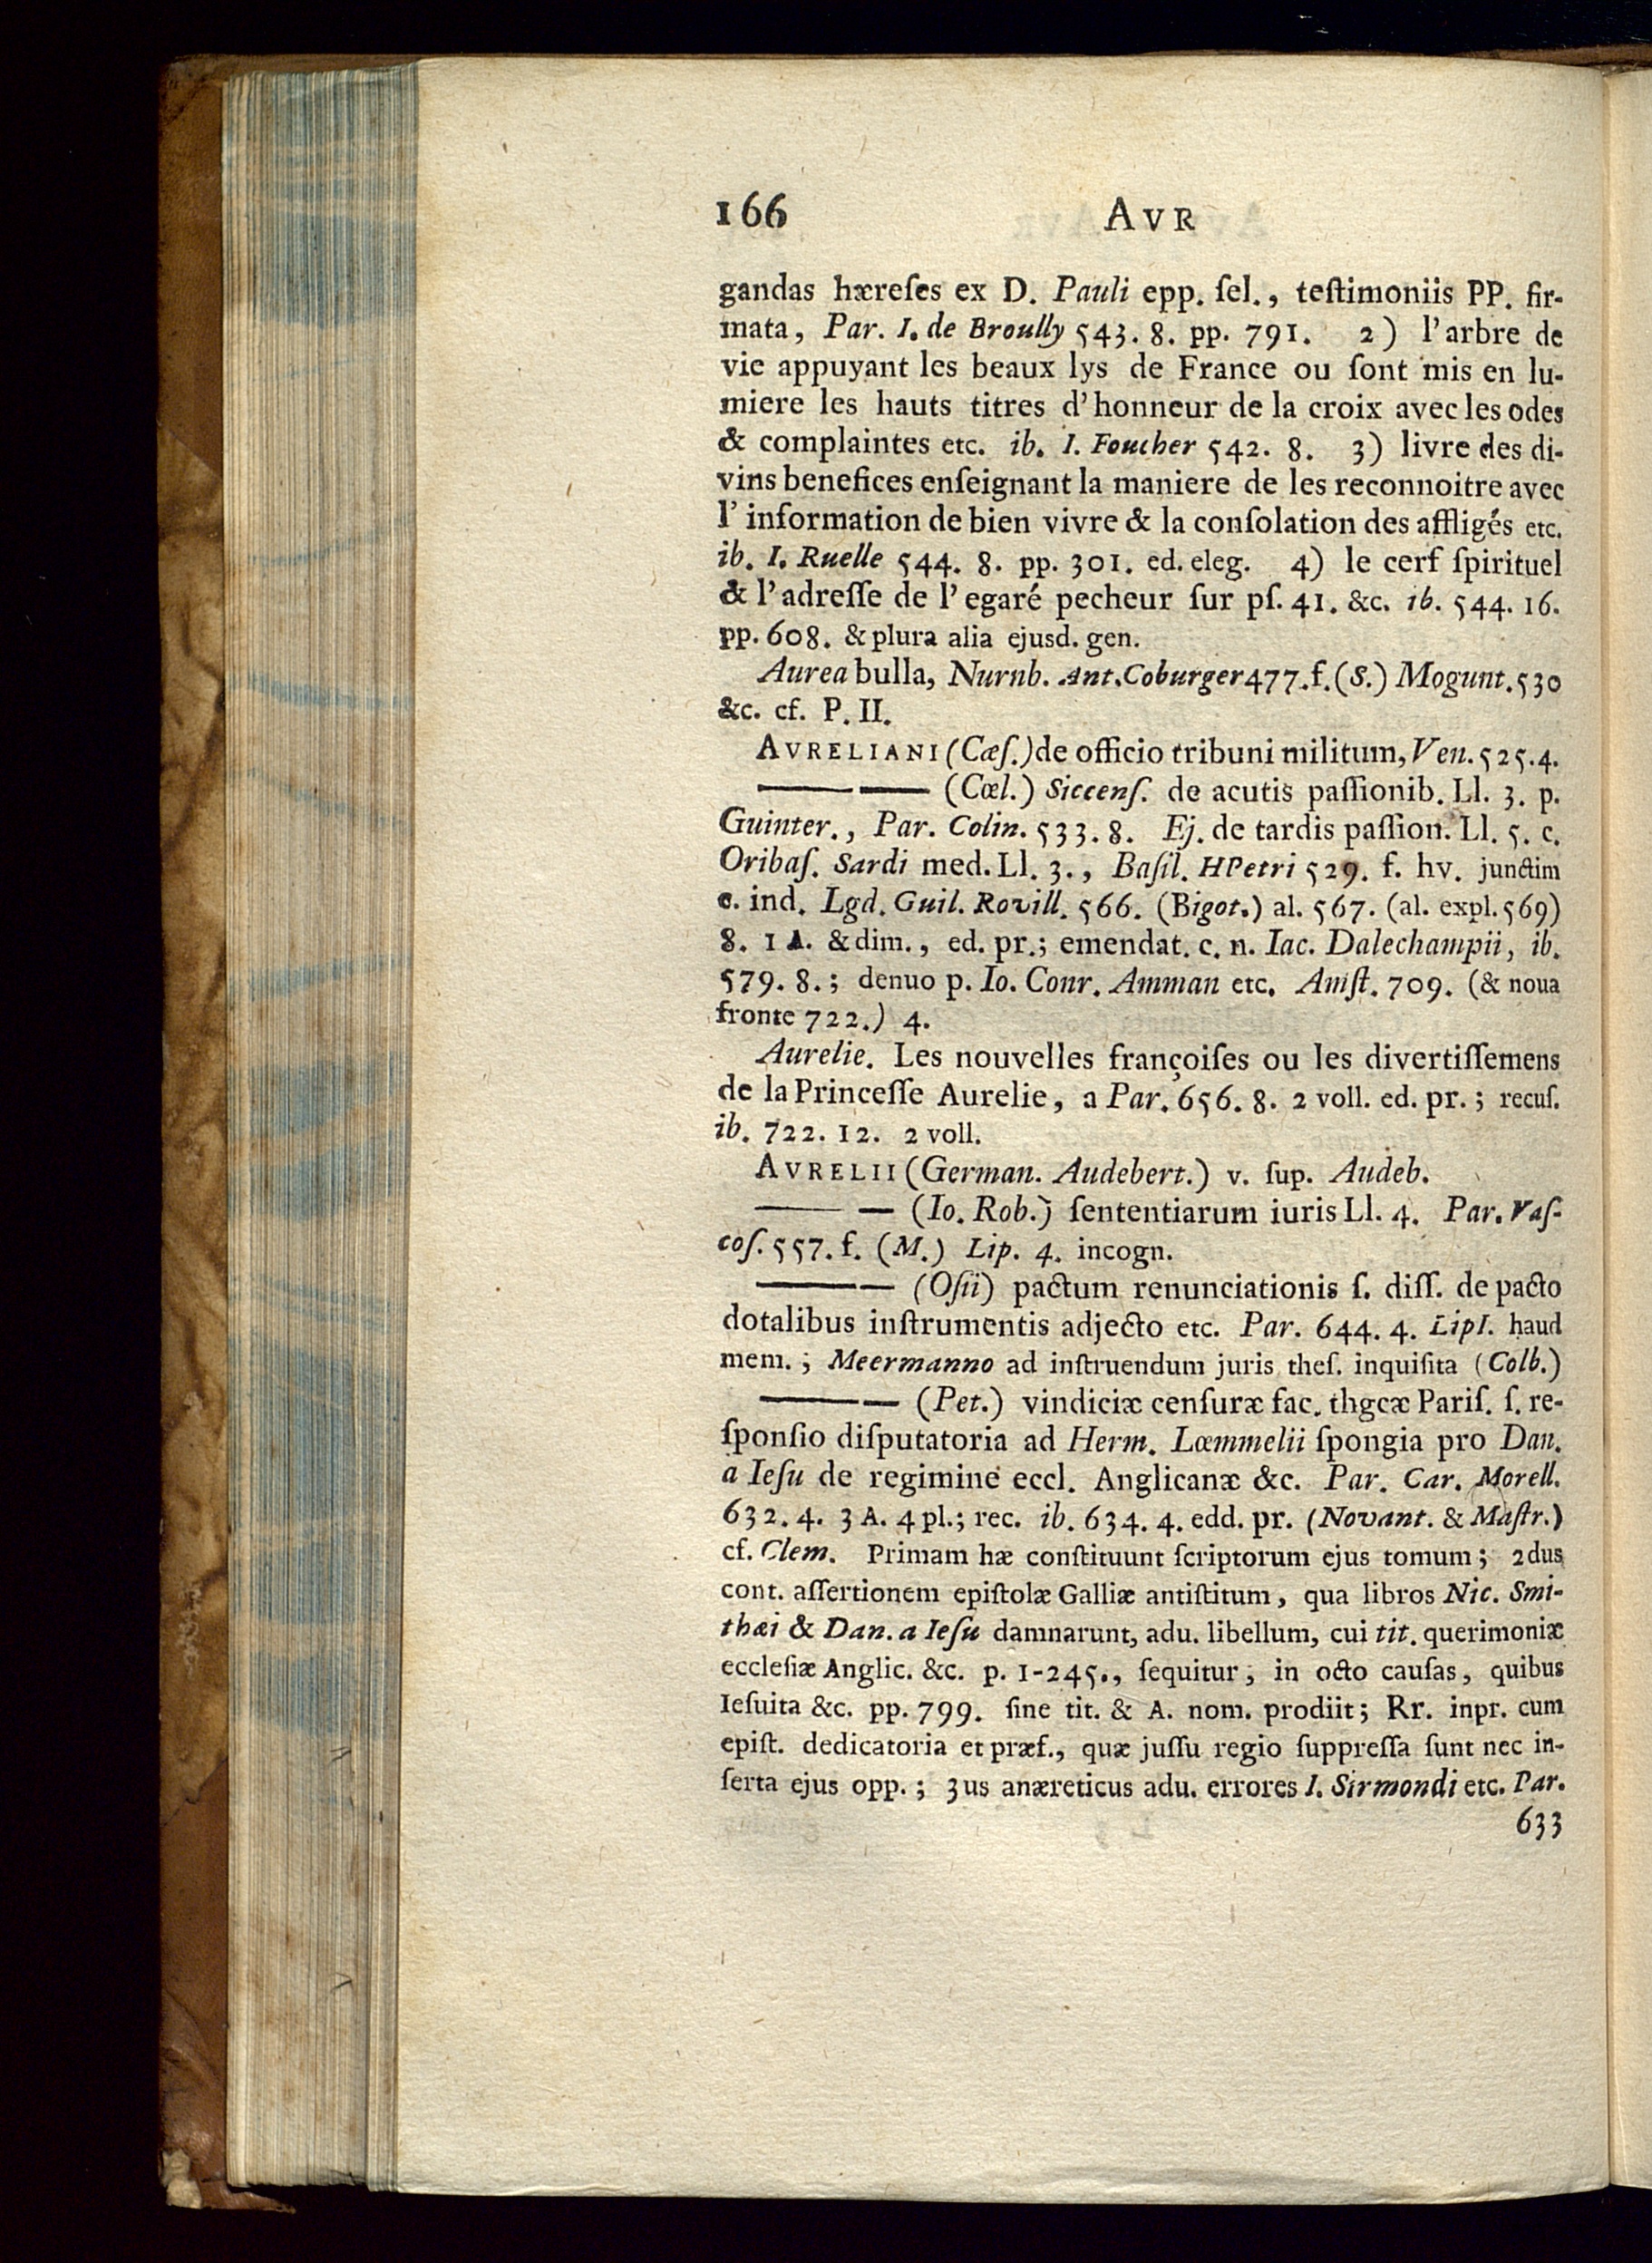 166 AVR
gandas hæreſes ex D. Pauli epp. ſel., teſtimoniis PP. fir-
mata, Par. I. de Broully 543. 8. pp. 791. 2) l'arbre de
vie appuyant les beaux lys de France ou ſont mis en lu-
miere les hauts titres d'honneur de la croix avec les odes
& complaintes etc. ib. I. Foucher 542. 8. 3) livre des di-
vins benefices enſeignant la maniere de les reconnoitre avec
l'information de bien vivre & la conſolation des affligés etc.
ib. I. Ruelle 544. 8. pp. 301. ed. eleg. 4) le cerf ſpirituel
& l'adreſſe de l'egaré pecheur ſur pſ. 41. &c. ib. 544. 16.
pp. 608. & plura alia ejusd. gen.
Aurea bulla, Nurnb. Ant. Coburger 477. f. (S.) Mogunt. 530
&c. cf. P. II.
AVRELIANI (Cæſ.) de officio tribuni militum, Ven. 525. 4.
—— — (Cœl.) Siccenſ. de acutis paſſionib. Ll. 3. p.
Guinter., Par. Colin. 533. 8. Ej. de tardis paſſion. Ll. 5. c.
Oribaſ. Sardi med. Ll. 3., Baſil. HPetri 529. f. hv. junctim
c. ind. Lgd. Guil. Rovill. 566. (Bigot.) al. 567. (al. expl. 569)
8. 1 A. & dim., ed. pr.; emendat. c. n. Iac. Dalechampii, ib.
579. 8.; denuo p. Io. Conr. Amman etc. Amſt. 709. (& noua
fronte 722.) 4.
Aurelie. Les nouvelles françoiſes ou les divertiſſemens
de la Princeſſe Aurelie, a Par. 656. 8. 2 voll. ed. pr.; recuſ.
ib. 722. 12. 2 voll.
AVRELII (German. Audebert.) v. ſup. Audeb.
—— — (Io. Rob.) ſententiarum iuris Ll. 4. Par. Vaſ-
coſ. 557. f. (M.) Lip. 4. incogn.
—— — (Oſii) pactum renunciationis ſ. diſſ. de pacto
dotalibus inſtrumentis adjecto etc. Par. 644. 4. LipI. haud
mem.; Meermanno ad inſtruendum juris theſ. inquiſita (Colb.)
—— — (Pet.) vindiciæ cenſuræ fac. thgcæ Pariſ. ſ. re-
ſponſio diſputatoria ad Herm. Lœmmelii ſpongia pro Dan.
a Ieſu de regimine eccl. Anglicanæ &c. Par. Car. Morell.
632. 4. 3 A. 4 pl.; rec. ib. 634. 4. edd. pr. (Novant. & Maſtr.)
cf. Clem. Primam hæ conſtituunt ſcriptorum ejus tomum; 2dus
cont. aſſertionem epiſtolæ Galliæ antiſtitum, qua libros Nic. Smi-
thæi & Dan. a Ieſu damnarunt, adu. libellum, cui tit. querimoniæ
eccleſiæ Anglic. &c. p. 1-245., ſequitur, in octo cauſas, quibus
Ieſuita &c. pp. 799. ſine tit. & A. nom. prodiit; Rr. inpr. cum
epiſt. dedicatoria et præf., quæ juſſu regio ſuppreſſa ſunt nec in-
ſerta ejus opp.; 3us anæreticus adu. errores I. Sirmondi etc. Par.
633